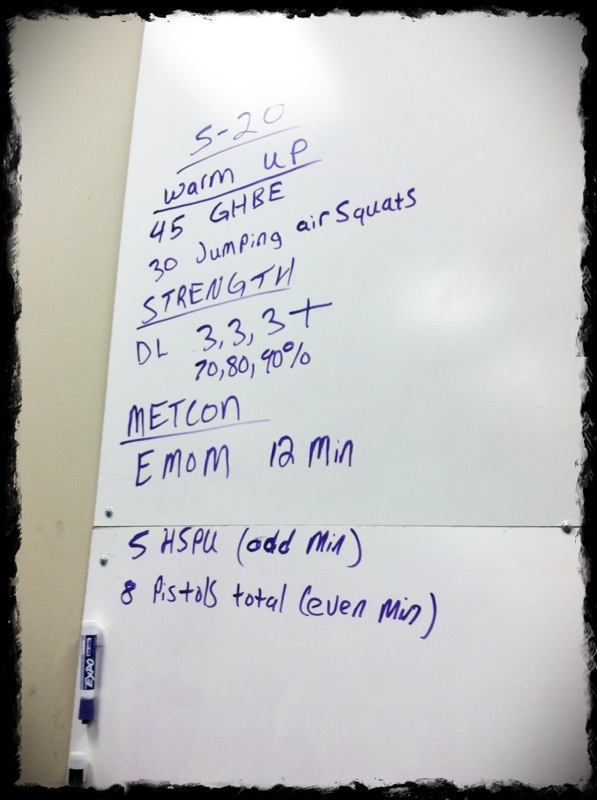 5-20
Warm UP
45 GHBE
30 Jumping air Squats
STRENGTH
DL 3,3,3+
70,80,90%
METCON
EMOM 12 Min
5 HSPU (odd Min)
8 Pistols total (even Min)
EXPO